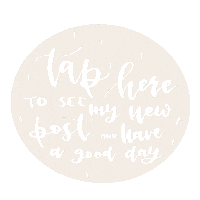 tap here
TO SEE my new
post AND have
a good day